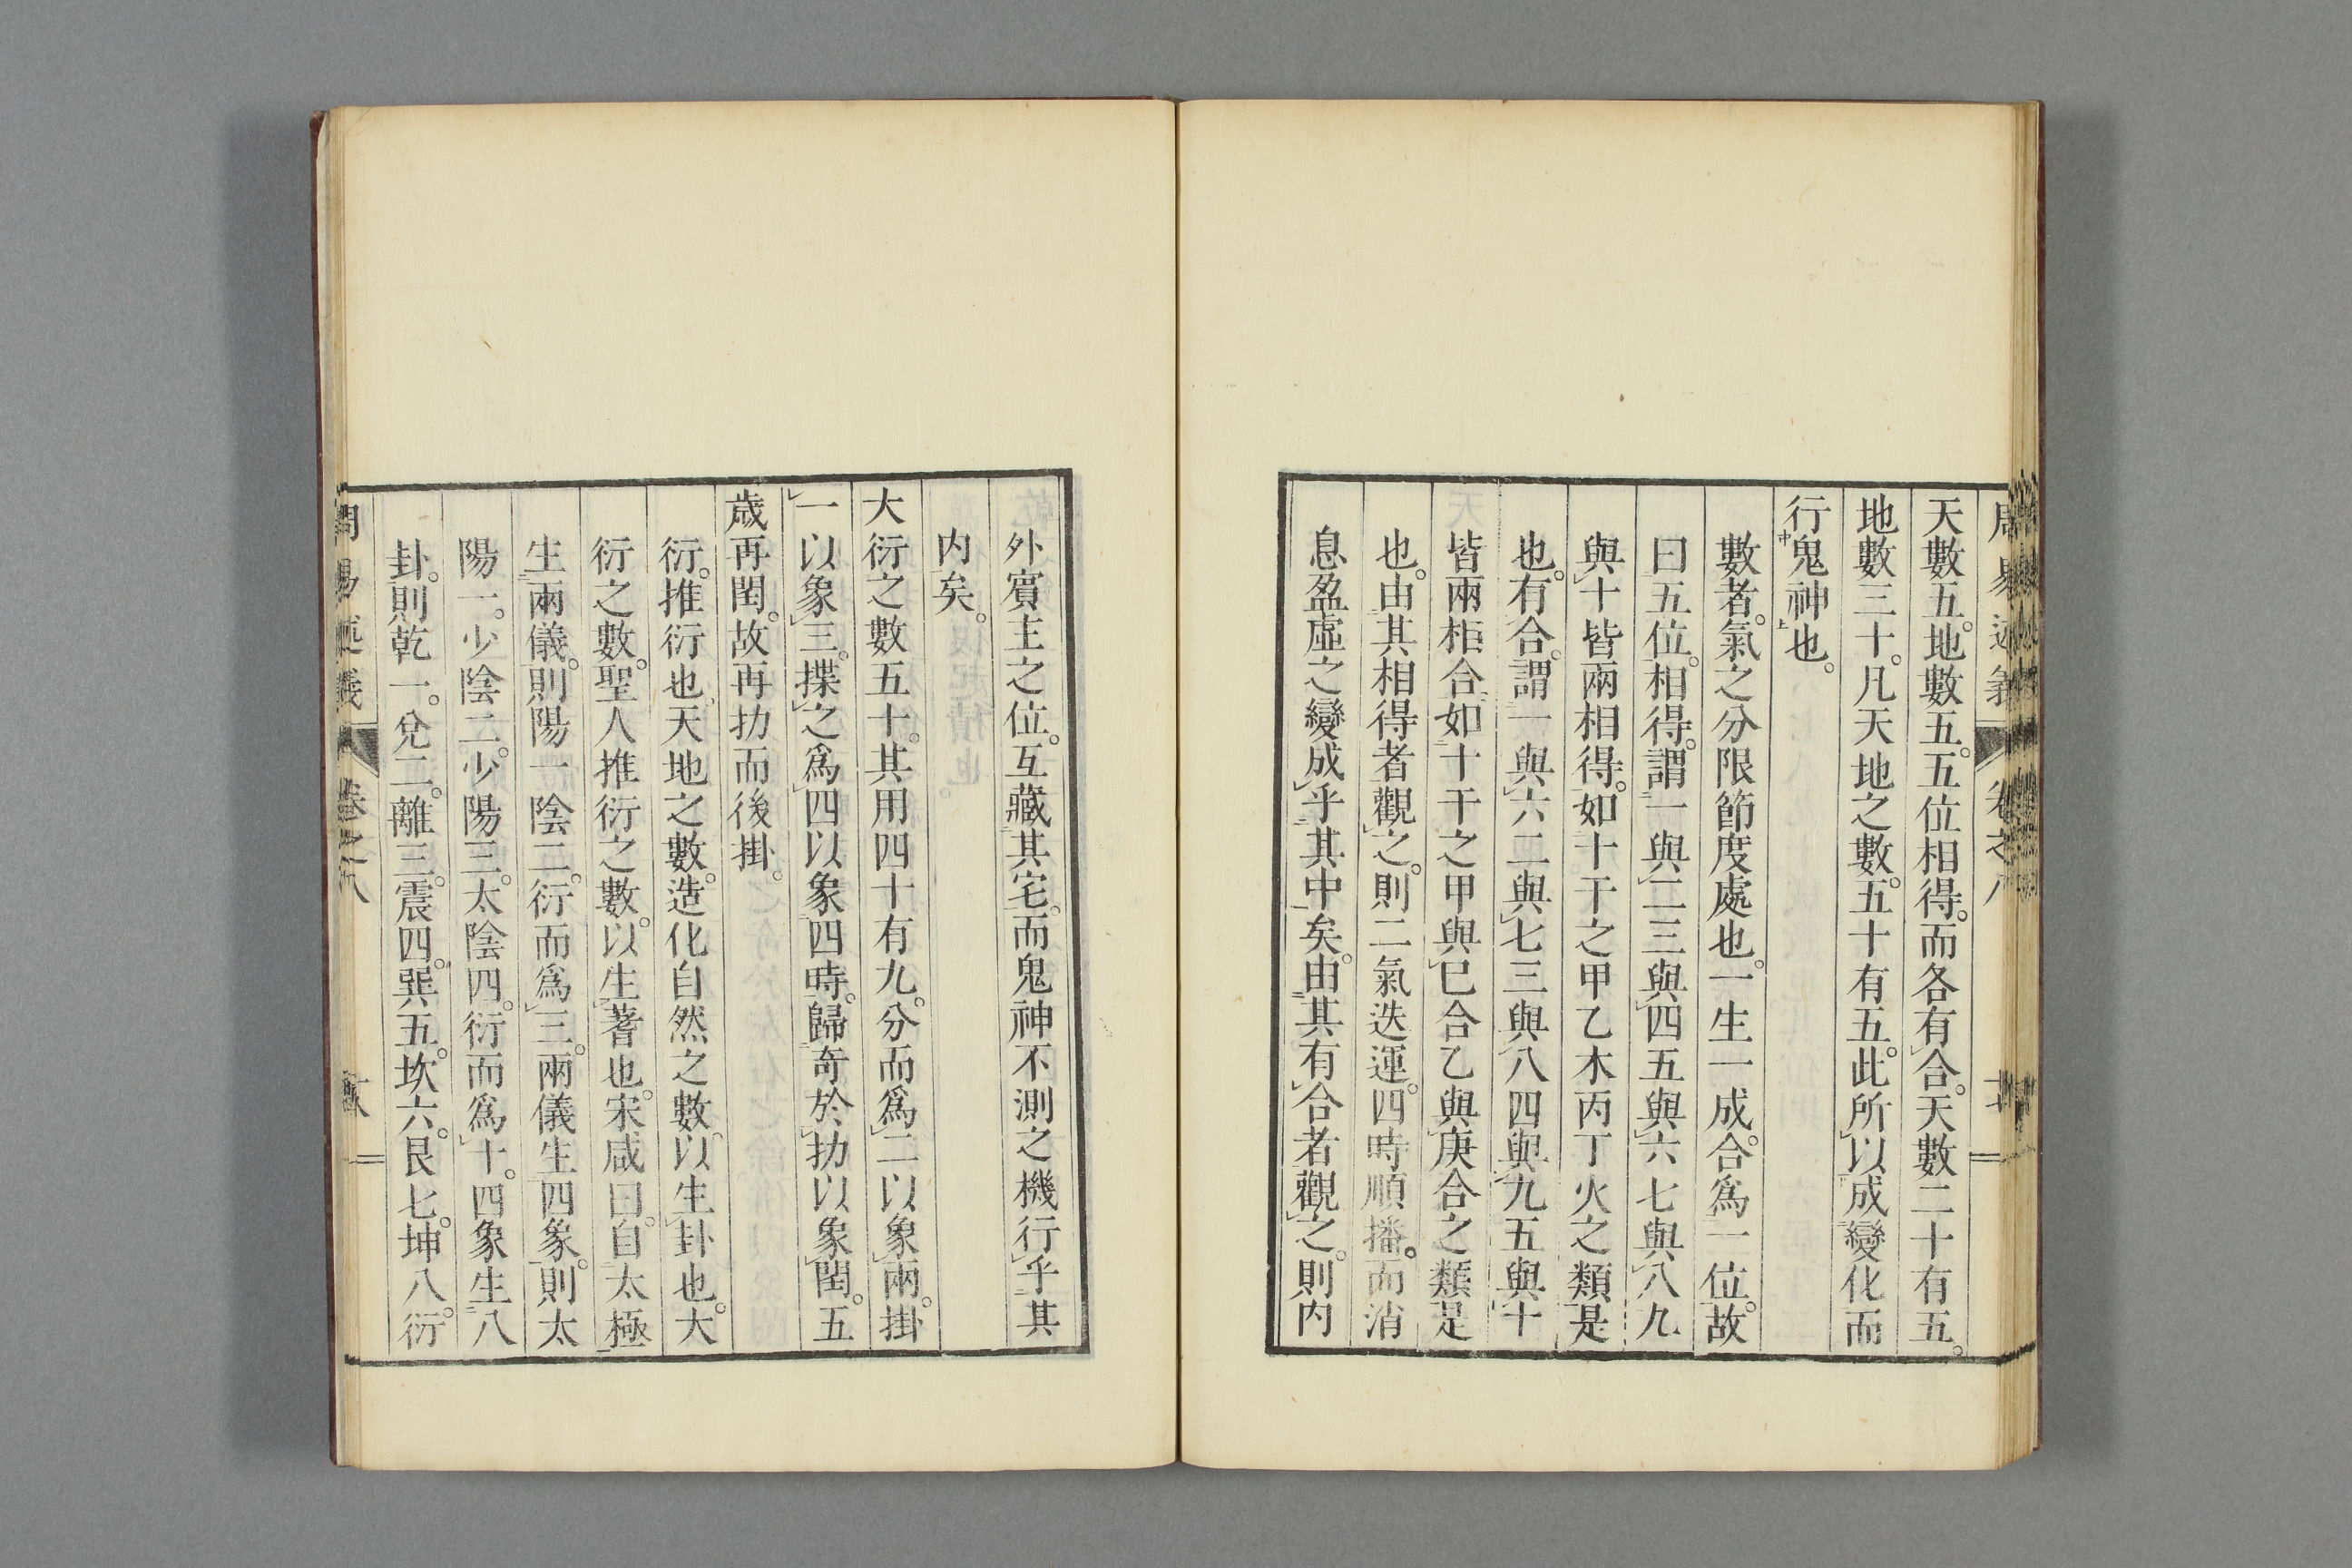 天數五。地數五。五位相得。而各有合。天數二十有五。
地數三十。凡天地之數。五十有五。此所以成變化而
行鬼神也。
數者。氣之分限節度處也。一生一成。合爲一位。故
曰五位。相得。謂一與二三與四五與六七與八九
與十皆兩相得。如十干之甲乙木丙丁火之類是
也。有合。謂一與六二與七三與八四與九五與十
皆兩相合。如十干之甲與己合乙與庚合之類是
也。由其相得者觀之。則二氣迭運。四時順播。而消
息盈虛之變成乎其中矣。由其有合者觀之。則内
外賓主之位。互藏其宅。而鬼神不測之機行乎其
内矣。
大衍之數五十。其用四十有九。分而爲二以象兩。掛
一以象三。揲之爲四以象四時。歸奇於扐以象閏。五
歳再閏。故再扐而後掛。
衍。推衍也。天地之數。造化自然之數。以生卦也。大
衍之數。聖人推衍之數。以生蓍也。宋咸曰。自太極
生兩儀。則陽一陰二。衍而爲三。兩儀生四象。則太
陽一。少陰二。少陽三。太陰四。衍而爲十。四象生八
卦。則乾一。兌二。離三。震四。巽五。坎六。艮七。坤八。衍
周易述義 卷之八